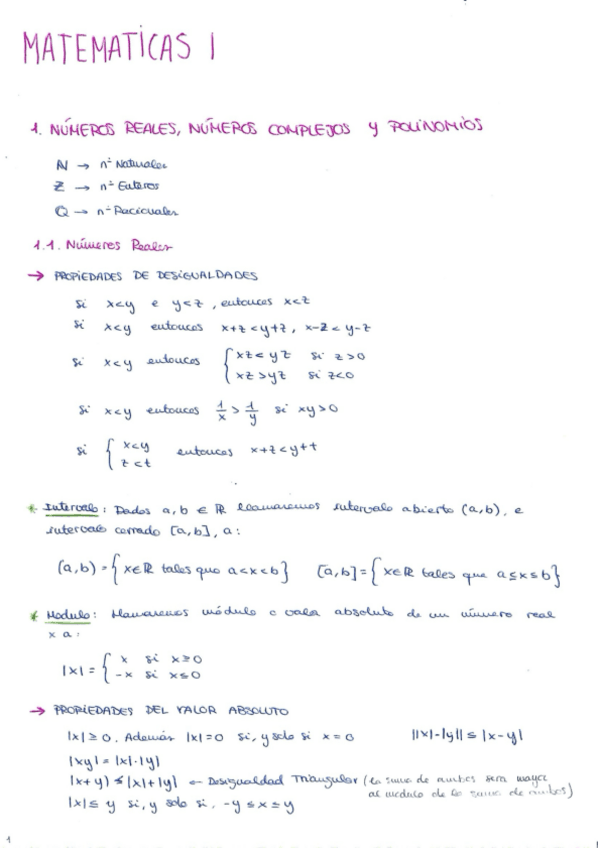 MATEMATICAS I
1. NÚMEROS REALES, NÚMEROS COMPLEJOS Y POLINOMIOS
N → nº Naturales
Z → nº Enteros
Q → nº Racionales
1.1. Números Reales
→ PROPIEDADES DE DESIGUALDADES
Si x<y e y<z, entonces x<z
Si x<y entonces x+z<y+z, x-z<y-z
Si x<y entonces { xz<yz si z>0
xz>yz si z<0
Si x<y entonces 1/x > 1/y si xy>0
Si { x<y
z<t entonces x+z<y+t
* Intervalo: Dados a,b ∈ ℝ llamaremos intervalo abierto (a,b), e
intervalo cerrado [a,b], a:
(a,b) = { x∈ℝ tales que a<x<b } [a,b] = { x∈ℝ tales que a≤x≤b }
* Modulo: Llamaremos módulo o valor absoluto de un número real
x a:
|x| = { x si x≥0
-x si x≤0
→ PROPIEDADES DEL VALOR ABSOLUTO
|x| ≥ 0. Además |x|=0 si, y solo si x=0 ||x|-|y|| ≤ |x-y|
|xy| = |x|·|y|
|x+y| ≤ |x|+|y| ← Desigualdad Triangular (la suma de ambos sera mayor
al modulo de la suma de ambos)
|x| ≤ y si, y solo si, -y ≤ x ≤ y
1